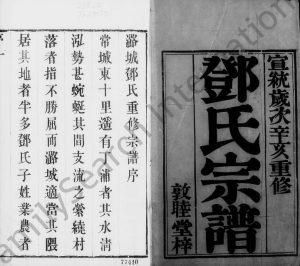 宣統歲次辛亥重修
鄧氏宗譜
敦睦堂梓
潞城鄧氏重修宗譜序
常城東十里遥有丁浦者其水清
泓勢甚蜿蜒其間支流之縈繞村
落者指不勝屈而潞城適當其隈
居其地者半多鄧氏子姓業農者
77410
FamilySearch International